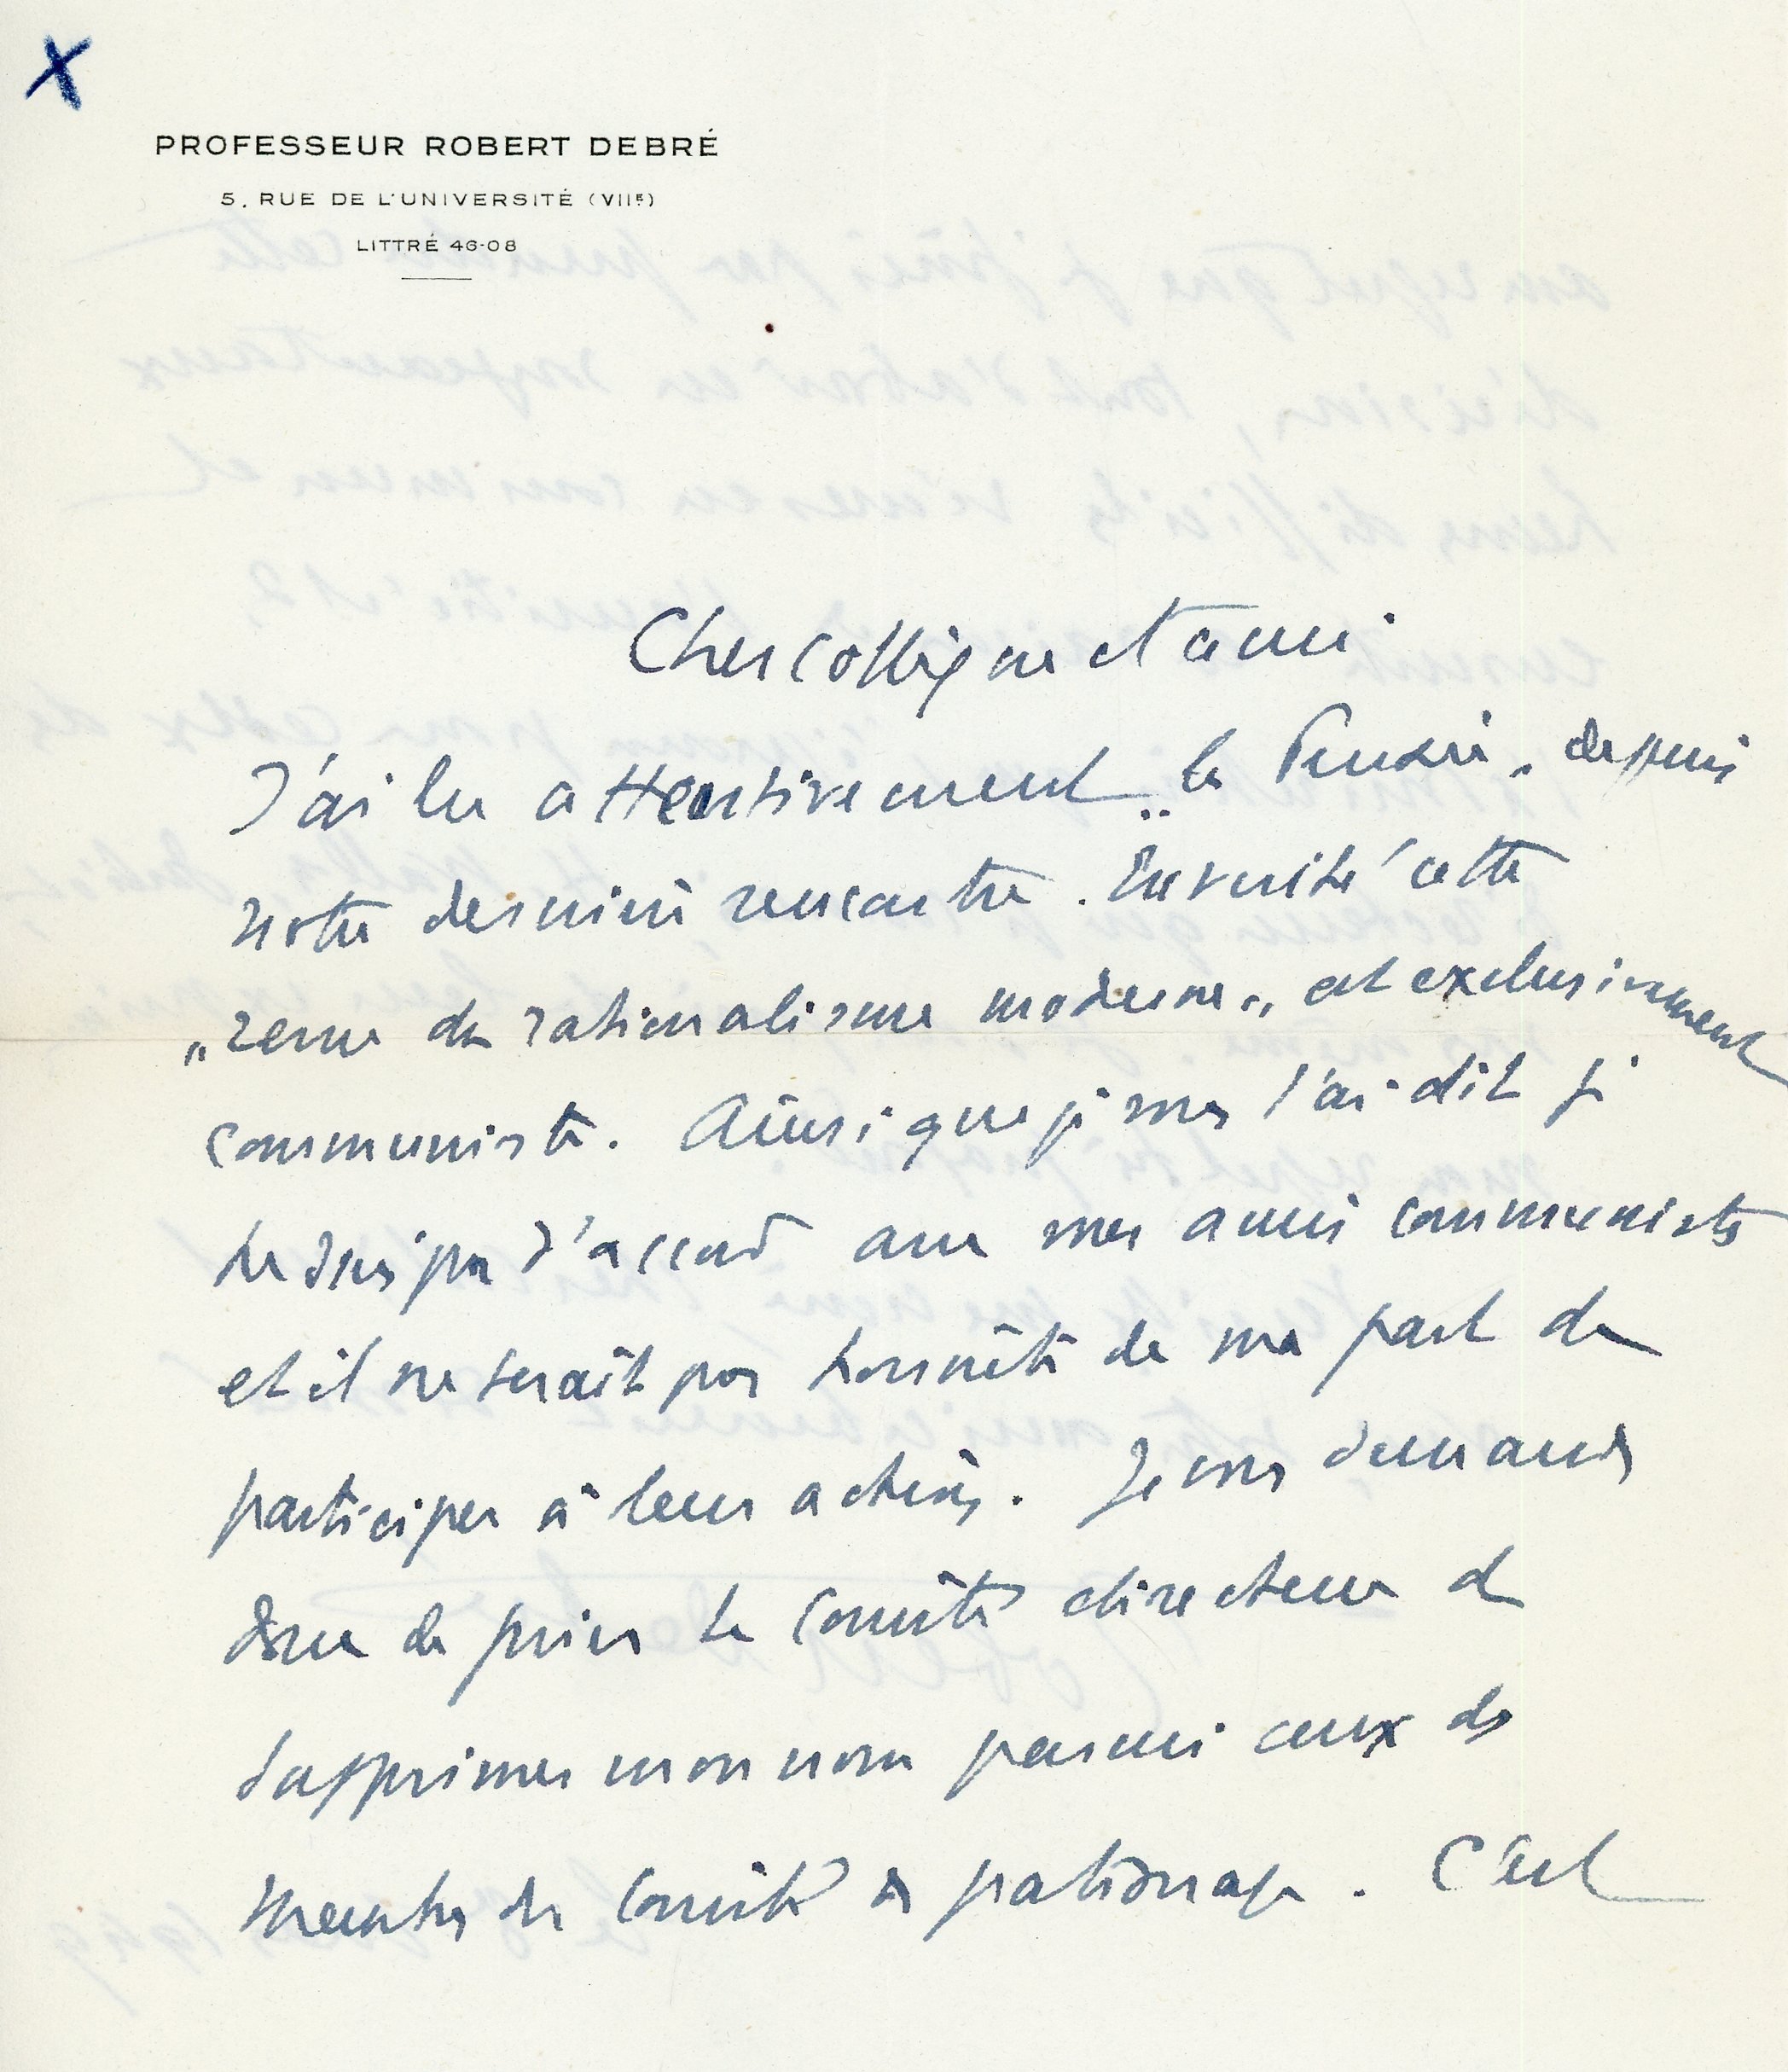 X
PROFESSEUR ROBERT DEBRÉ
5, RUE DE L'UNIVERSITÉ (VIIᴱ)
LITTRÉ 46-08
Cher collègue et ami
J'ai lu attentivement „la Pensée„ depuis
notre dernière rencontre. En vérité cette
„revue du rationalisme moderne„ est exclusivement
communiste. Ainsi que je vous l'ai dit je
ne suis pas d'accord avec mes amis communistes
et il ne serait pas honnête de ma part de
participer à leur action. Je vous demande
donc de prier le Comité directeur de
supprimer mon nom parmi ceux des
membres du Comité de patronage. C'est